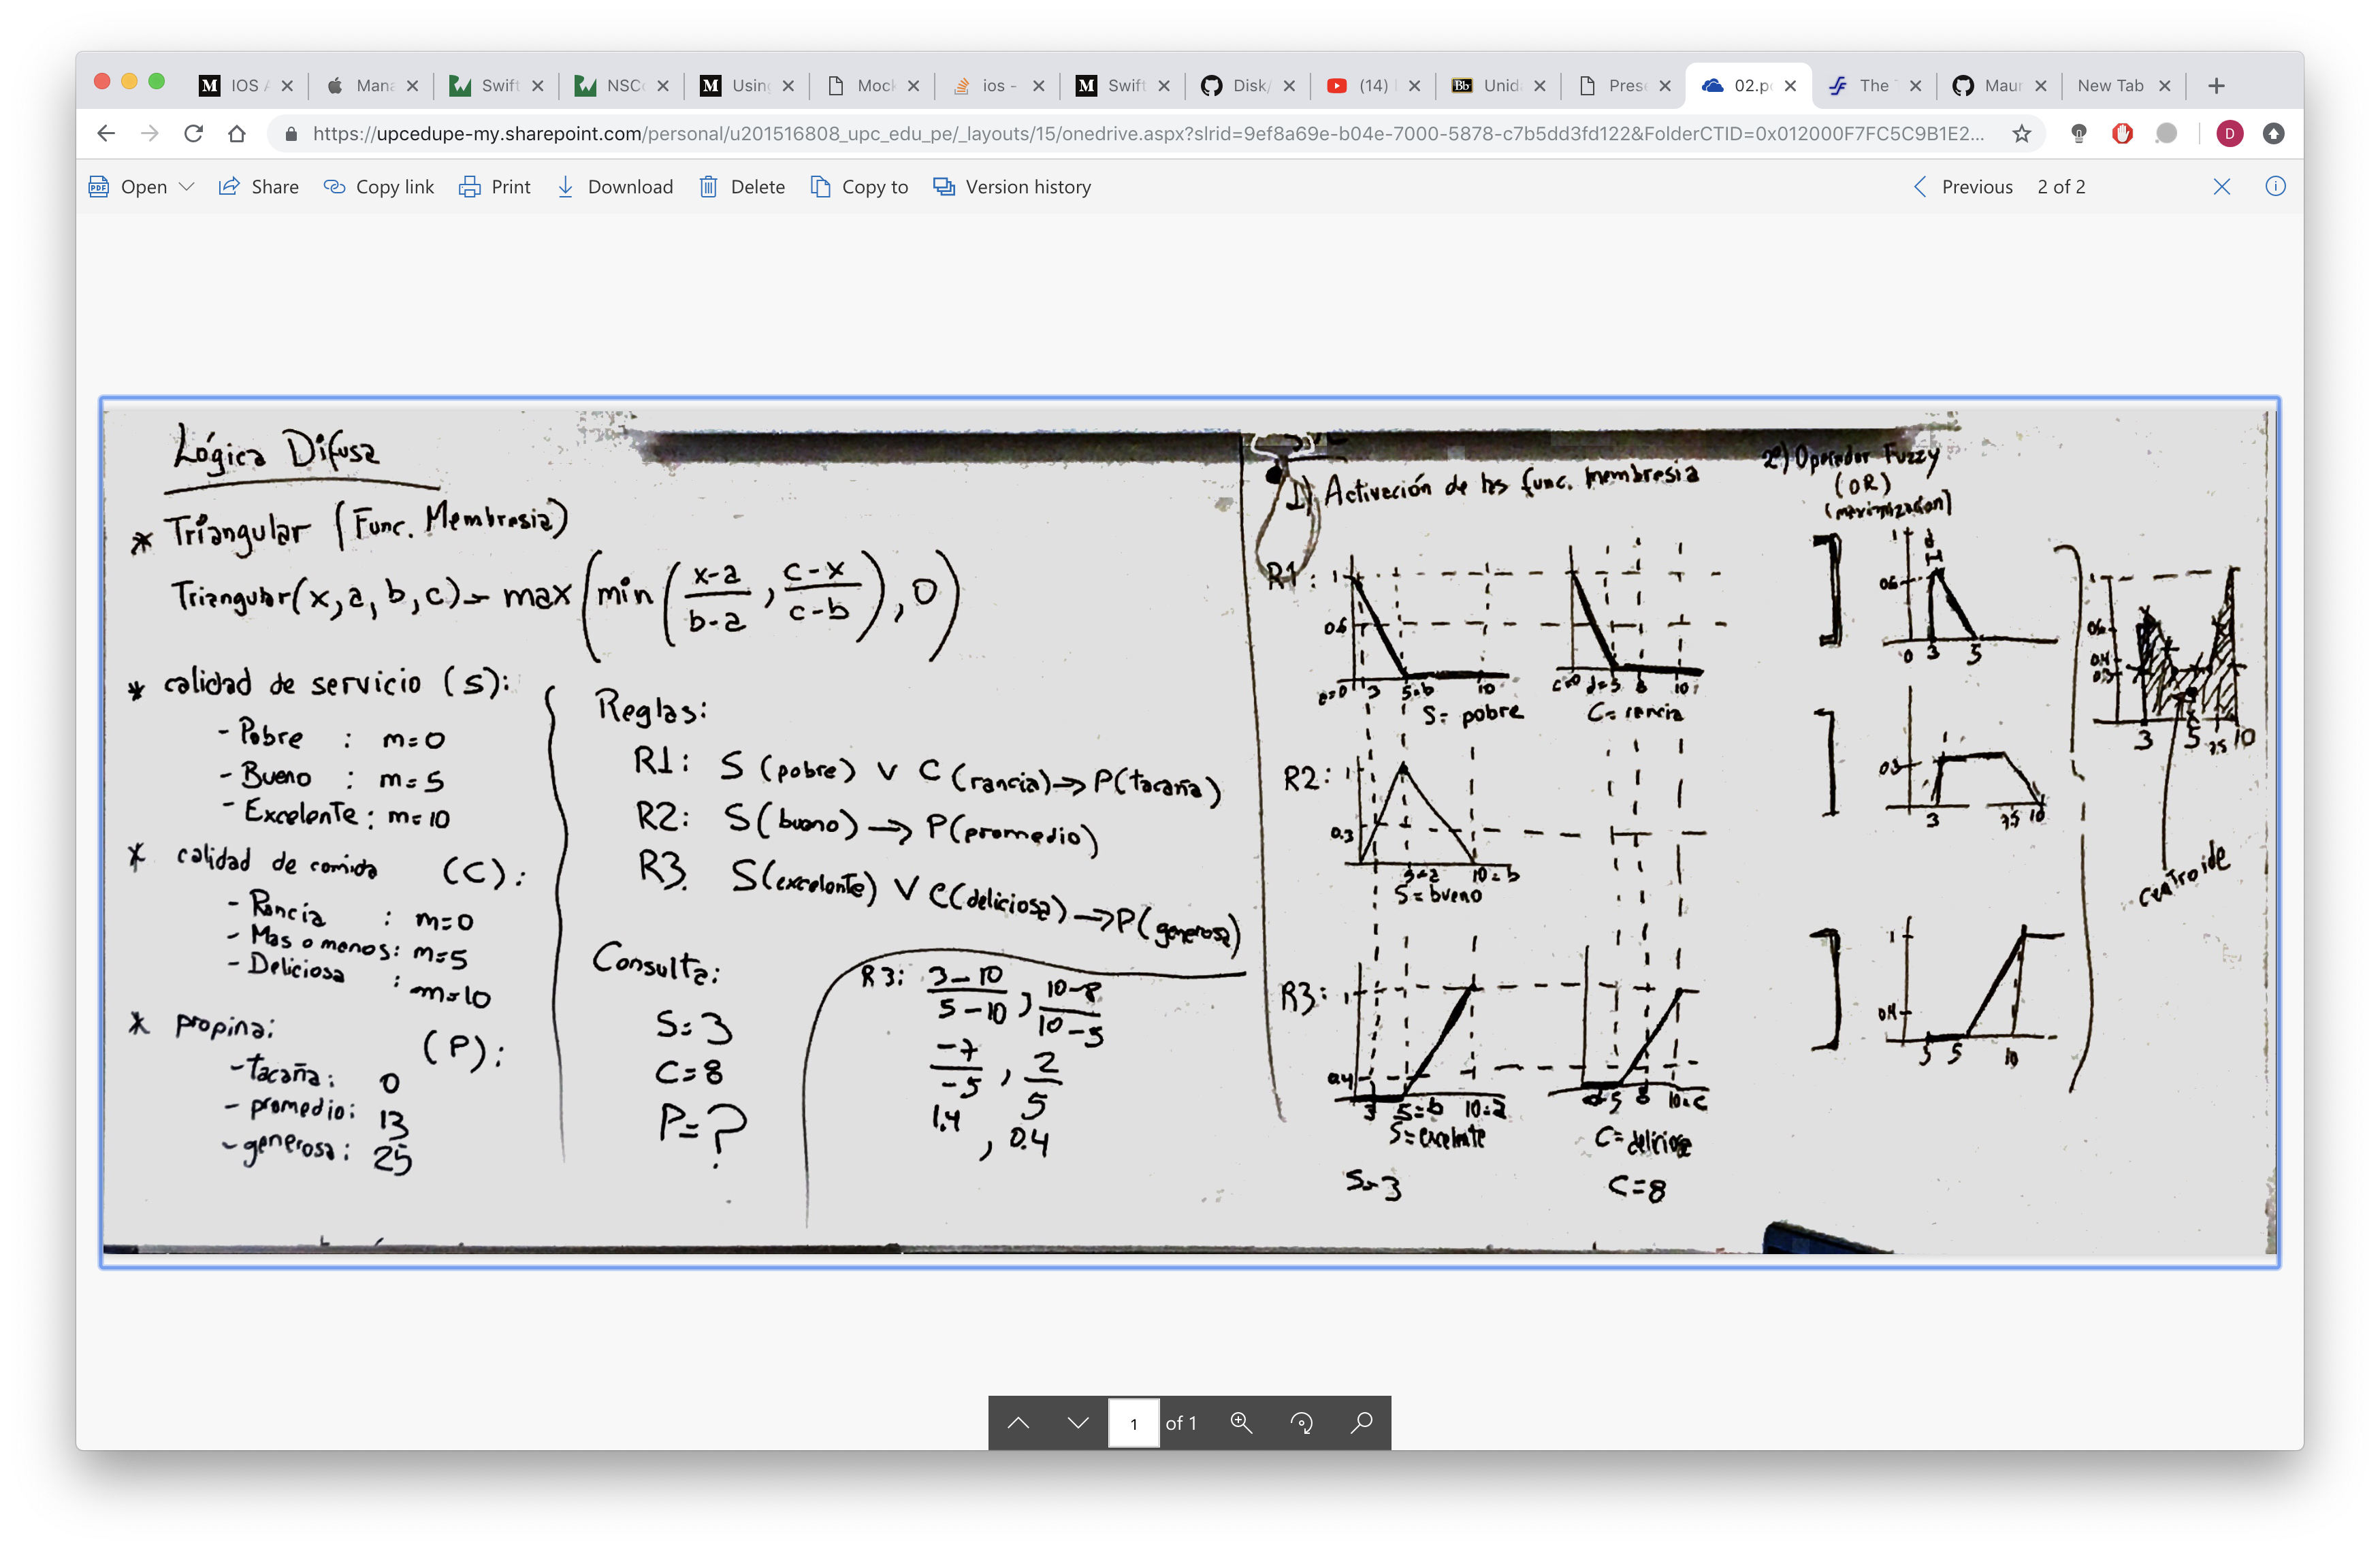 IOS A
Mana
Swift
NSCo
Using
Mock
ios -
Swift
Disk/
(14)
Unida
Prese
02.pd
The
Maur
New Tab
https://upcedupe-my.sharepoint.com/personal/u201516808_upc_edu_pe/_layouts/15/onedrive.aspx?slrid=9ef8a69e-b04e-7000-5878-c7b5dd3fd122&FolderCTID=0x012000F7FC5C9B1E2...
D
Open
Share
Copy link
Print
Download
Delete
Copy to
Version history
Previous
2 of 2
Lógica Difusa
* Triangular (Func. Membresia)
Triangular(x,a,b,c) = max(min(x-a/b-a, c-x/c-b), 0)
* calidad de servicio (S):
- Pobre : m=0
- Bueno : m=5
- Excelente : m=10
* calidad de comida (C):
- Rancia : m=0
- Mas o menos: m=5
- Deliciosa : m=10
* propina: (P):
- tacaña: 0
- promedio: 13
- generosa: 25
Reglas:
R1: S (pobre) ∨ C (rancia) → P(tacaña)
R2: S(bueno) → P(promedio)
R3. S(excelente) ∨ C(deliciosa) → P(generosa)
Consulta:
S=3
C=8
P=?
R3: 3-10/5-10, 10-8/10-5
-7/-5, 2/5
1.4, 0.4
1) Activación de las func. membresia
R1: 1
0.6
a=0 3 5=b 10
S= pobre
c=0 d=5 8 10
C= rancia
R2: 1
0.3
5=a 10=b
S= bueno
R3: 1
0.4
3 5=b 10=a
S= excelente
d=5 8 10=c
C= deliciosa
S=3
C=8
2º) Operador Fuzzy
(OR)
(maximización)
1
0.6
0 3 5
0.3
3 7.5 10
1
0.4
3 5 10
1
0.6
0.4
0.3
3 5 7.5 10
centroide
1 of 1